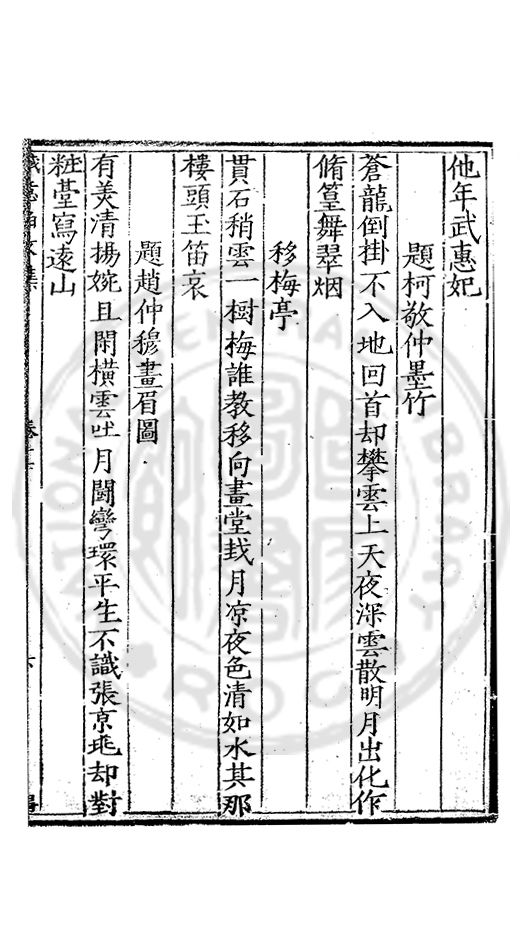 他年武惠妃
題柯敬仲墨竹
蒼龍倒掛不入地回首却攀雲上天夜深雲散明月出化作
脩篁舞翠烟
移梅亭
貫石稍雲一樹梅誰教移向畫堂栽月凉夜色清如水其那
樓頭玉笛哀
題趙仲穆畫眉圖
有美清揚婉且閑橫雲吐月鬪彎環平生不識張京兆却對
粧臺寫遠山